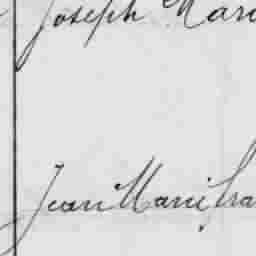 Joseph Mar
Jean Marie fra